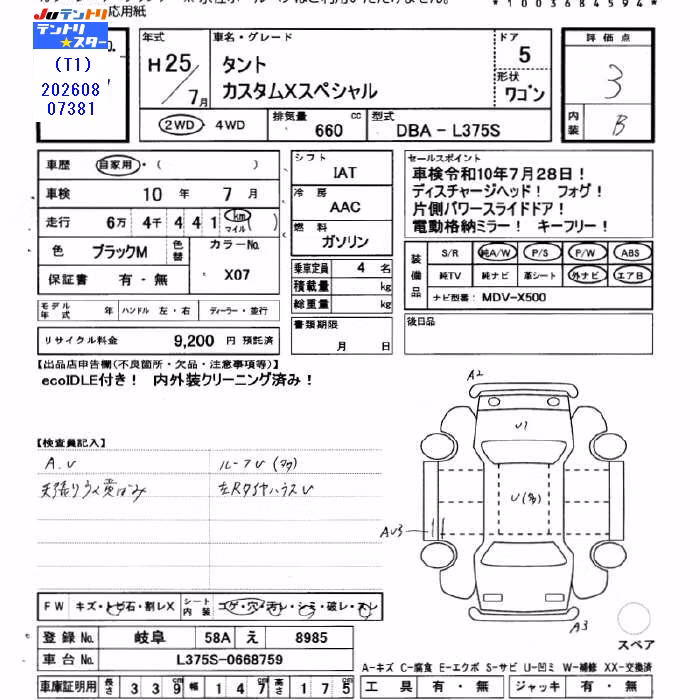 応用紙
*1003684594*
JUテントリ
テントリ
★スター
(T1)
202608
07381
年式
H25/7月
車名・グレード
タント
カスタムXスペシャル
ドア
5
形状
ワゴン
評価点
3
内装
B
2WD・4WD
排気量
660 cc
型式
DBA - L375S
車歴 自家用・( )
車検 10 年 7 月
走行 6万 4千 4 4 1 km マイル
色 ブラックM 色替 カラーNo. X07
保証書 有・無
モデル年式 年 ハンドル 左・右 ディーラー・並行
リサイクル料金 9,200 円 預託済
シフト
IAT
冷房
AAC
燃料
ガソリン
乗車定員 4 名
積載量 kg
総重量 kg
書類期限
月 日
セールスポイント
車検令和10年7月28日!
ディスチャージヘッド! フォグ!
片側パワースライドドア!
電動格納ミラー! キーフリー!
装備品
S/R 純A/W P/S P/W ABS
純TV 純ナビ 革シート 外ナビ エアB
ナビ型番: MDV-X500
後日品
【出品店申告欄(不良箇所・欠品・注意事項等)】
ecoIDLE付き! 内外装クリーニング済み!
【検査員記入】
A.U
ルーフU(多)
天張りウス黄ばみ
左Rタイヤハウス U
A2
U1
U(多)
AU3
A3
スペア
FW キズ・トビ石・割レX シート内装 コゲ・穴・汚レ・シミ・破レ・スレ
登録No. 岐阜 58A え 8985
車台No. L375S-0668759
車庫証明用 長さ 3 3 9 cm 幅 1 4 7 cm 高さ 1 7 5 cm
A-キズ C-腐食 E-エクボ S-サビ U-凹ミ W-補修 XX-交換済
工具 有・無 ジャッキ 有・無